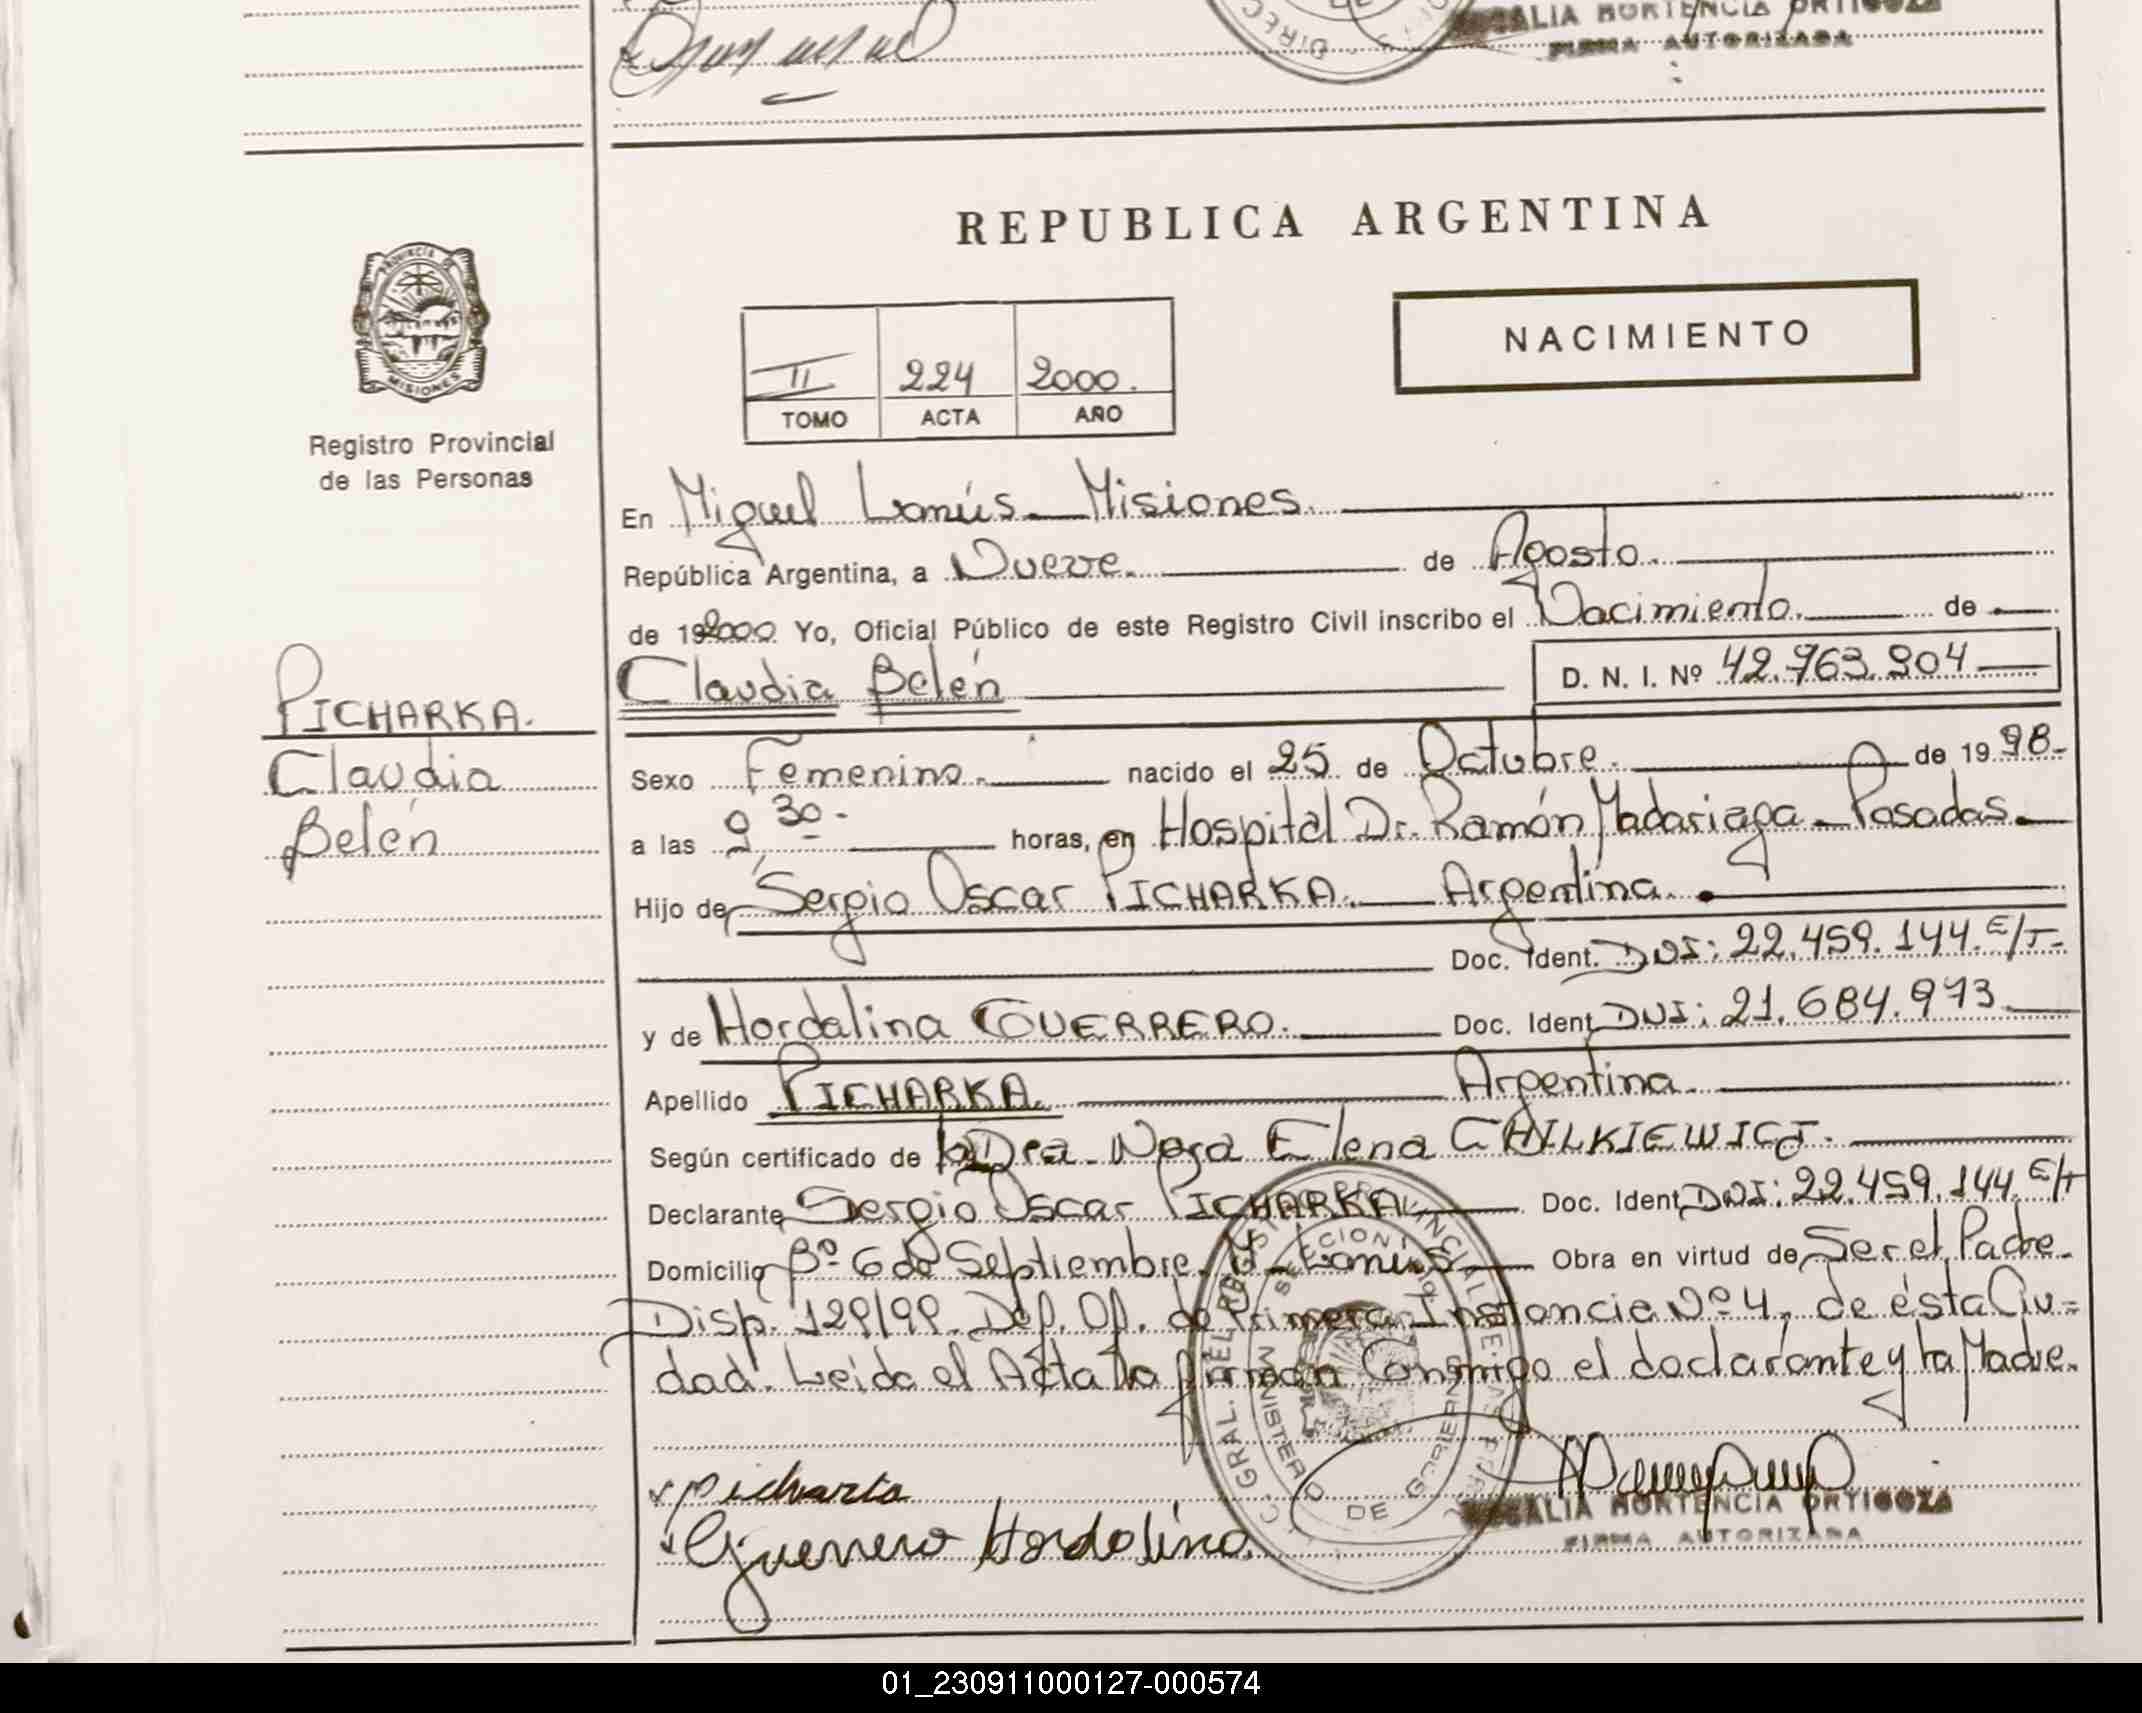 ROSALIA HORTENCIA ORTIGOZA
FIRMA AUTORIZADA
REPUBLICA ARGENTINA
PROVINCIA DE
MISIONES
Registro Provincial
de las Personas
NACIMIENTO
II 224 2000.
TOMO ACTA AÑO
En Miguel Lanús - Misiones.
República Argentina, a Nueve. de Agosto.
de 192000 Yo, Oficial Público de este Registro Civil inscribo el Nacimiento. de
Claudia Belén D. N. I. Nº 42.963.904
PICHARKA.
Claudia
Belén
Sexo Femenino. nacido el 25 de Octubre. de 1998.
a las 9,30. horas, en Hospital Dr. Ramón Madariaga - Posadas.
Hijo de Sergio Oscar PICHARKA. Argentina.
Doc. Ident. DNI: 22.459.144. E/T.
y de Hordalina GUERRERO. Doc. Ident. DNI: 21.684.973
Apellido PICHARKA. Argentina.
Según certificado de la Dra. Nora Elena CHILKIEWICZ.
Declarante Sergio Oscar PICHARKA Doc. Ident. DNI: 22.459.144. E/T
Domicilio Bº 6 de Septiembre. M. Lanús Obra en virtud de Ser el Padre.
Disp. 129/99. Def. Of. de Primera Instancia Nº 4, de ésta Ciu-
dad. Leída el Acta la firman Conmigo el declarante y la Madre.
Picharka
Guerrero Hordalina.
ROSALIA HORTENCIA ORTIGOZA
FIRMA AUTORIZADA
01_230911000127-000574